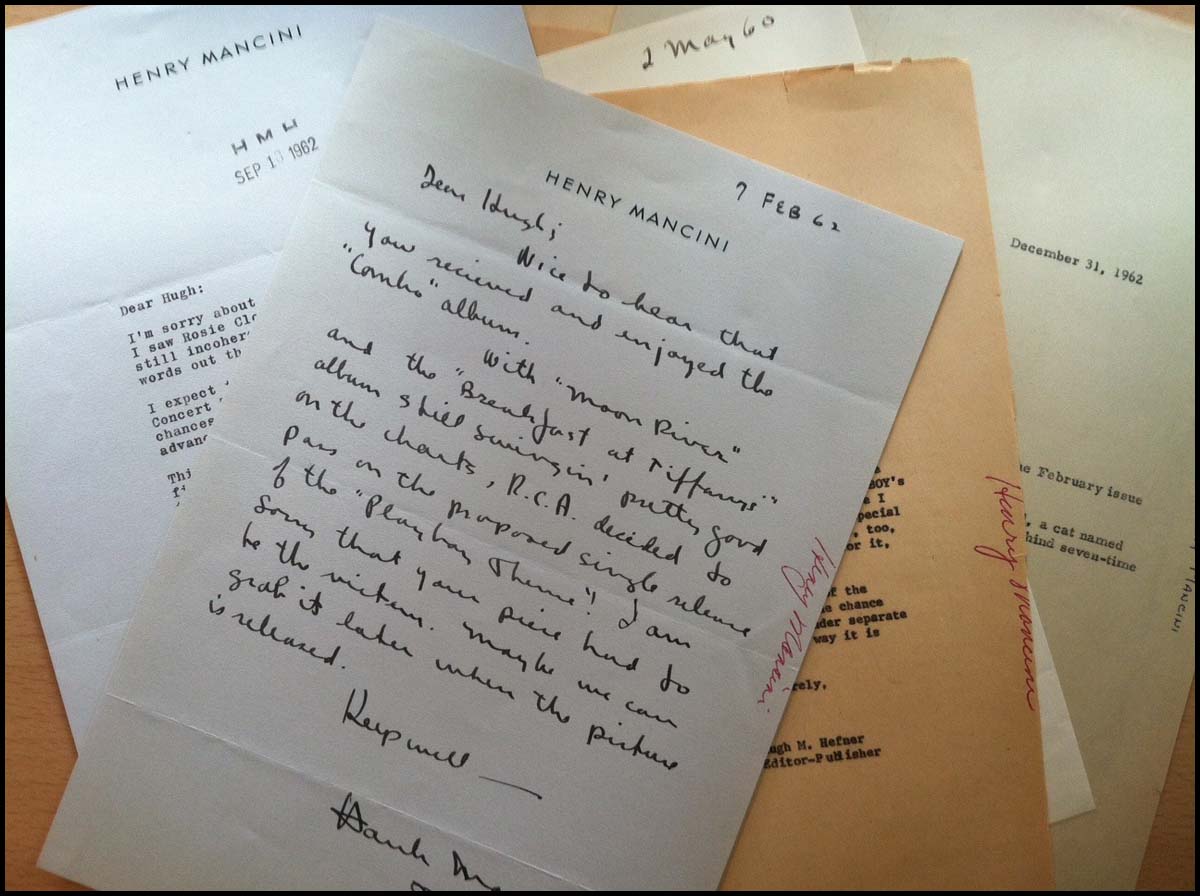 HENRY MANCINI
HMH
SEP 13 1962
Dear Hugh:
I'm sorry about
I saw Rosie Clo
still incoher
words out th
I expect
Concert
chances
advanc
Thi
2 May 60
HENRY MANCINI
7 FEB 62
Dear Hugh;
Nice to hear that
you recieved and enjoyed the
"Combo" album.
With "Moon River"
and the "Breakfast at Tiffanys"
album still swingin' pretty good
on the charts, R.C.A. decided to
pass on the proposed single release
of the "Playboy Theme". I am
sorry that your piece had to
be the victem. Maybe we can
grab it later when the picture
is released.
Keep well —
Hank Ma
Henry Mancini
BOY's
e I
pecial
, too,
or it,
f the
e chance
der separate
way it is
rely,
ugh M. Hefner
Editor-Publisher
Henry Mancini
December 31, 1962
he February issue
, a cat named
hind seven-time
MANCINI